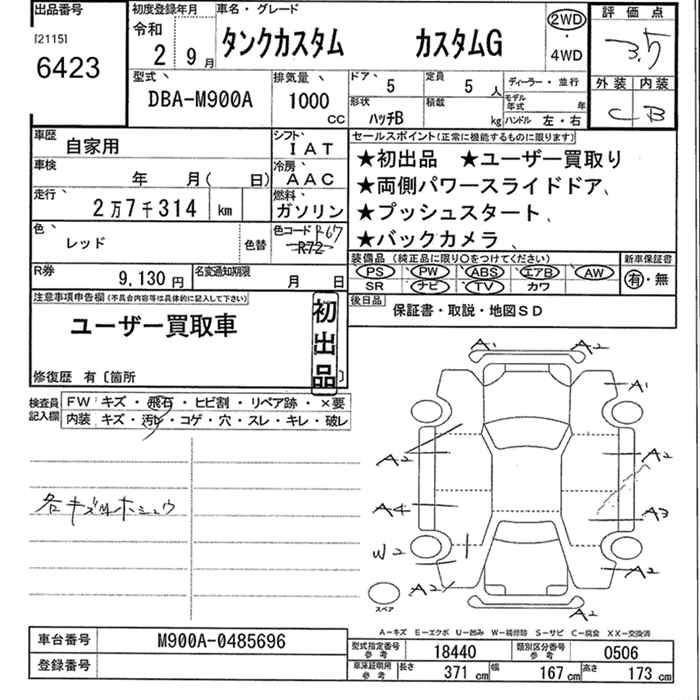 出品番号
[2115]
6423
初度登録年月
令和
2 9月
車名・グレード
タンクカスタム カスタムG
2WD
・
4WD
評価点
3.5
外装 内装
C B
型式
DBA-M900A
排気量
1000
CC
ドア 5
定員 5 人
形状 ハッチB
積載 kg
ディーラー・並行
モデル年式 年
ハンドル 左・右
車歴 自家用
シフト IAT
車検 年 月( 日)
冷房 AAC
走行 2万7千314 km
燃料 ガソリン
色 レッド
色替
色コード R67
R72
R券 9,130円
名変通知期限 月 日
セールスポイント(正常に機能するものに限ります)
★初出品 ★ユーザー買取り
★両側パワースライドドア、
★プッシュスタート、
★バックカメラ、
装備品(純正品に限り○をつけてください)
PS PW ABS エアB AW
SR ナビ TV カワ
新車保証書
有・無
後日品
保証書・取説・地図SD
注意事項申告欄(不具合内容等は具体的に記入して下さい)
ユーザー買取車
初出品
修復歴 有〔箇所 〕
検査員記入欄
FW キズ・飛石・ヒビ割・リペア跡・×要
内装 キズ・汚れ・コゲ・穴・スレ・キレ・破レ
A1 A2
A1
A2 A2
A4 A3
W2 A2
A2 A2
スペア
A-キズ E-エクボ U-凹み W-補修跡 S-サビ C-腐食 XX-交換済
車台番号 M900A-0485696
登録番号
型式指定番号 参考 18440
類別区分番号 参考 0506
車庫証明用 参考 長さ 371 cm 幅 167 cm 高さ 173 cm